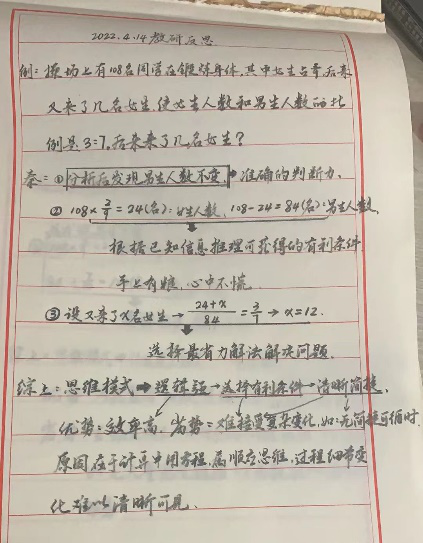 2022.4.14 教研反思
例：操场上有108名同学在锻炼身体，其中女生占2/9后来
又来了几名女生，使女生人数和男生人数的比
例是3:7，后来来了几名女生？
秦：①分析后发现男生人数不变，➡准确的判断力.
②108×2/9=24(名)：女生人数，108-24=84(名)：男生人数
根据已知信息推理可获得的有利条件
手上有粮，心中不慌.
③设又来了x名女生→(24+x)/84=3/7→x=12.
选择最省力解法解决问题.
综上：思维模式➡逻辑强→选择有利条件→清晰简捷.
优势：效率高，劣势：难接受复杂变化，如：无简捷可循时.
原因在于计算中用方程，属顺应思维，过程细节变
化难以清晰可见.